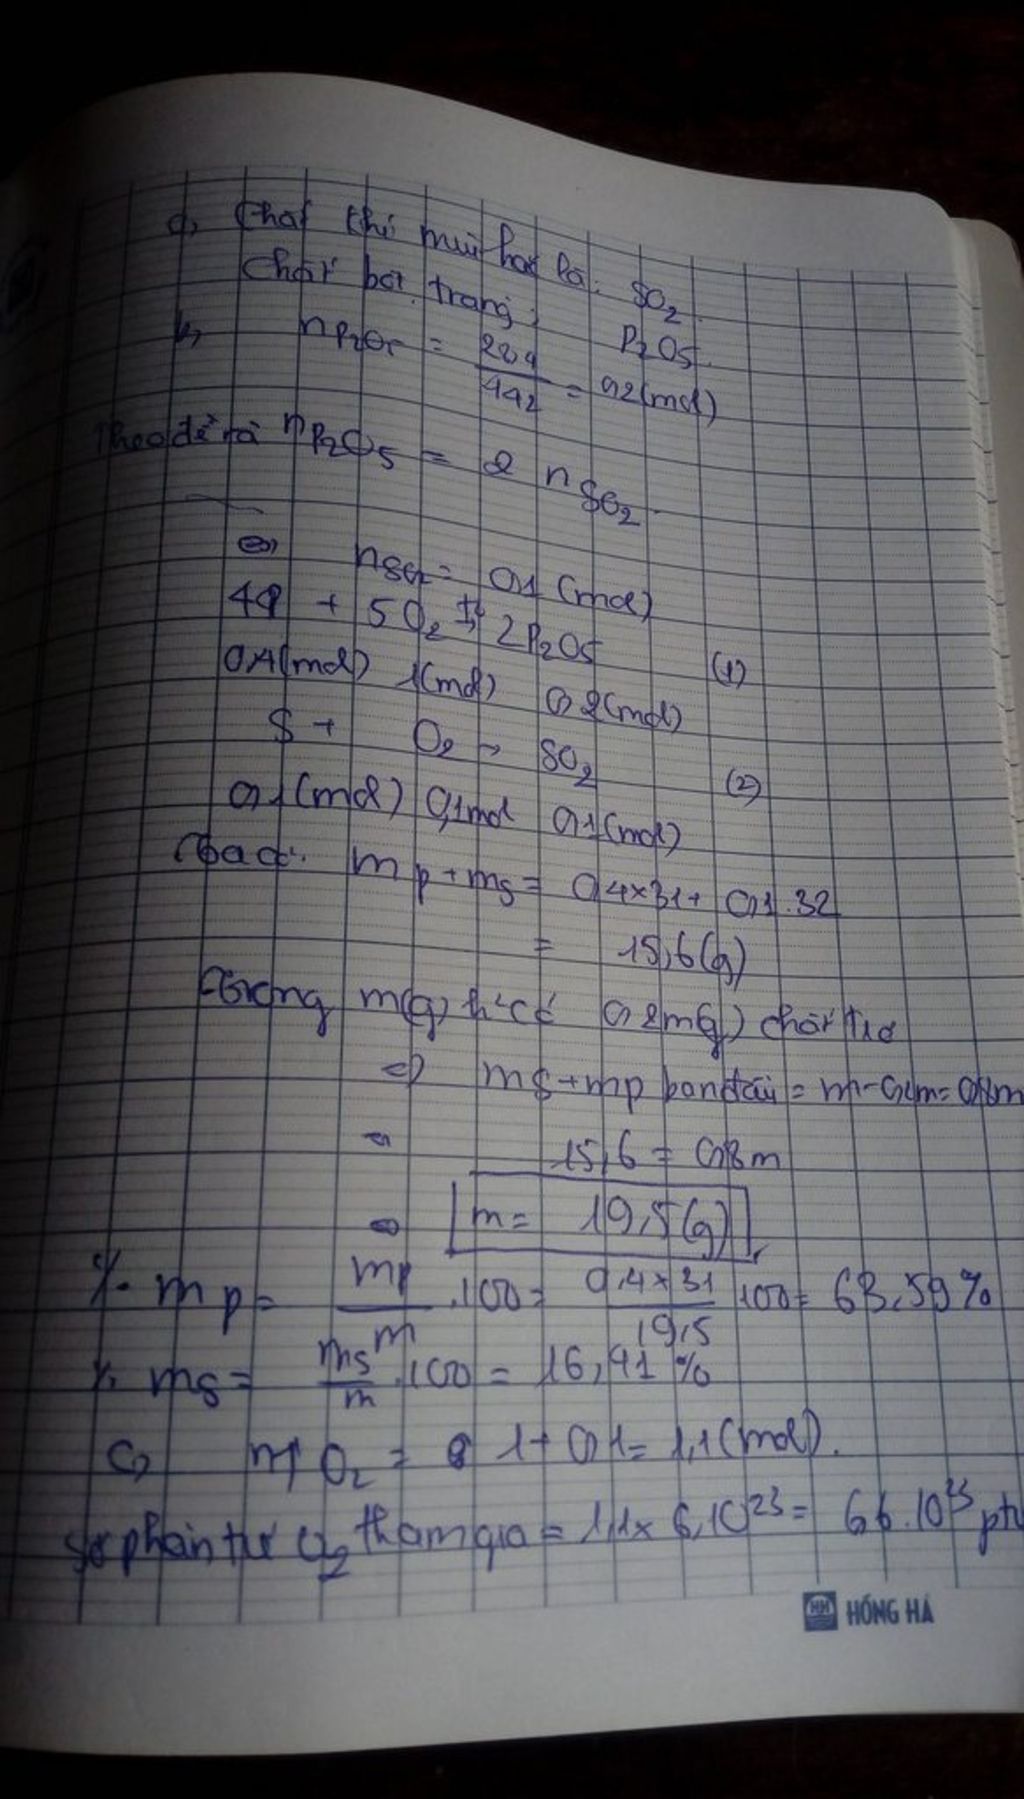 a, Chất khí mùi hắc là: SO2
Chất bột trắng: P2O5
b, nP2O5 = 28,4/142 = 0,2(mol)
Theo đề ra nP2O5 = 2 nSO2
=> nSO2 = 0,1 (mol)
4P + 5O2 t° → 2P2O5 (1)
0,4(mol) 1(mol) 0,2(mol)
S + O2 → SO2 (2)
0,1(mol) 0,1mol 0,1(mol)
mP + mS = 0,4×31 + 0,1.32
= 15,6(g)
Trong m(g) h² có 0,2m(g) chất trơ
=> mS + mP ban đầu = m - 0,2m = 0,8m
15,6 = 0,8m
m = 19,5(g)
% mP = mP/m .100 = 0,4×31/19,5 100 = 63,59%
% mS = mS/m .100 = 16,41%
c, n O2 = 1 + 0,1 = 1,1(mol).
Số phân tử O2 tham gia = 1,1 × 6.10^23 = 6,6.10^23 ptử
HH HỒNG HÀ